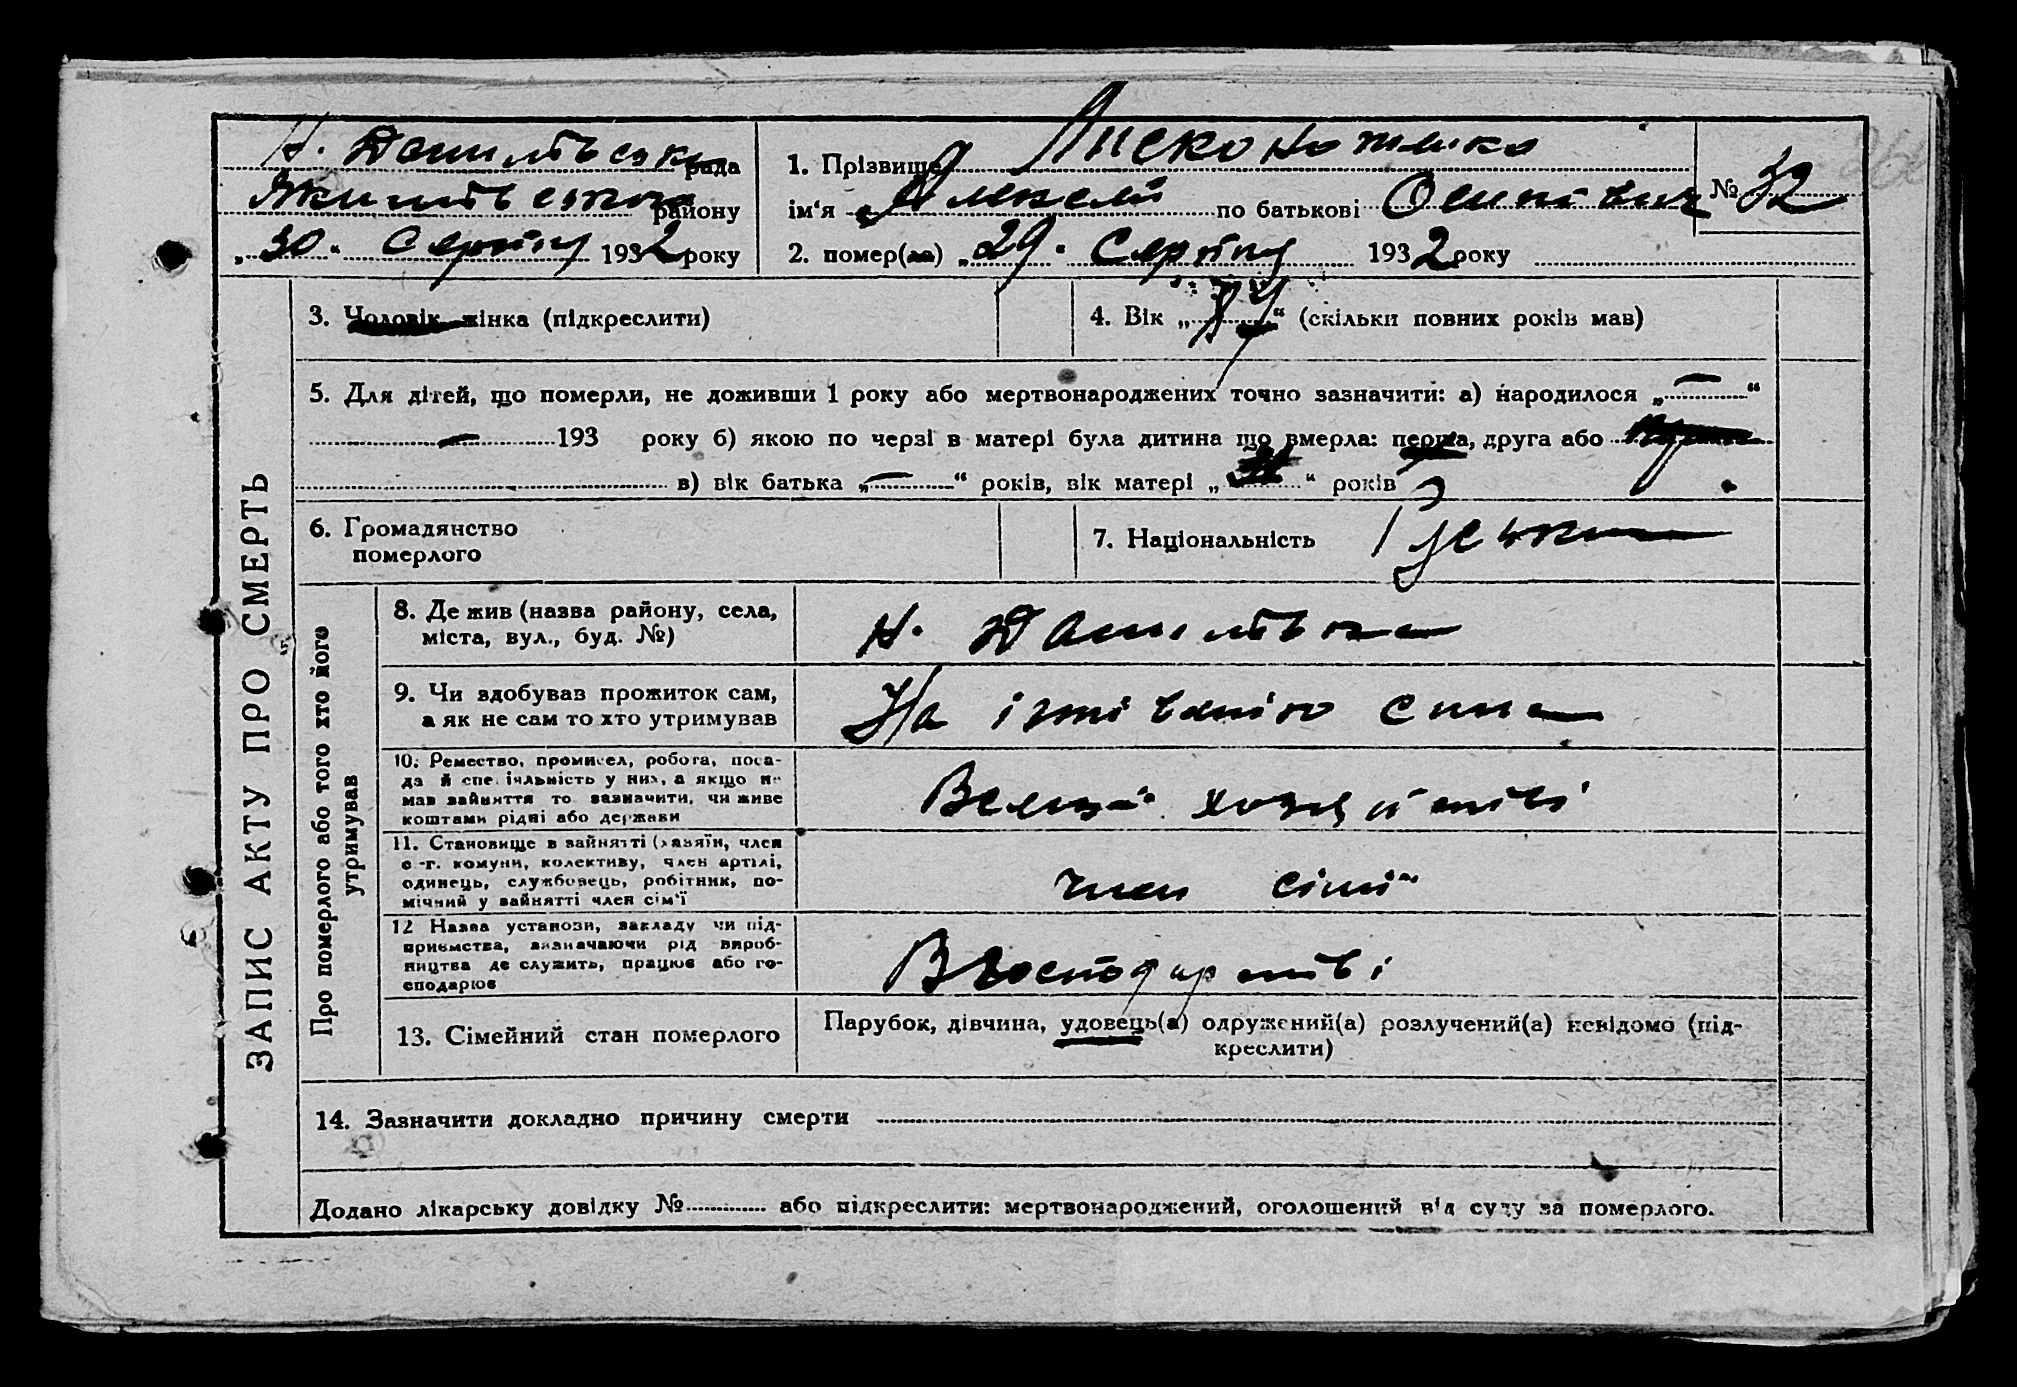 Н. Данилівська рада
району
„30“ Серпня 1932 року
1. Прізвище
ім‘я Олексій по батькові Осипович
№ 32
2. помер(ла) „29“ Серпня 1932 року
ЗАПИС АКТУ ПРО СМЕРТЬ
3. Чоловік жінка (підкреслити)
4. Вік „74“ (скільки повних років мав)
5. Для дітей, що померли, не доживши 1 року або мертвонароджених точно зазначити: а) народилося „—“
— 193 року б) якою по черзі в матері була дитина що вмерла: перша, друга або
в) вік батька „—“ років, вік матері „ “ років
6. Громадянство
померлого
7. Національність Руський
Про померлого або того хто його
утримував
8. Де жив (назва району, села,
міста, вул., буд. №)
Н. Данилівка
9. Чи здобував прожиток сам,
а як не сам то хто утримував
На сина
10. Ремество, промисел, робота, поса-
да й спеціяльність у них, а якщо не
мав зайняття то зазначити, чи живе
коштами рідні або держави
11. Становище в зайнятті (хазяїн, член
с.-г. комуни, колективу, член артілі,
одинець, службовець, робітник, по-
мічний у зайнятті член сім‘ї
член сімї
12 Назва установи, закладу чи під-
приємства, зазначаючи рід вироб-
ництва де служить, працює або го-
сподарює
В господарстві
13. Сімейний стан померлого
Парубок, дівчина, удовець(а) одружений(а) розлучений(а) невідомо (під-
креслити)
14. Зазначити докладно причину смерти
Додано лікарську довідку № або підкреслити: мертвонароджений, оголошений від суду за померлого.